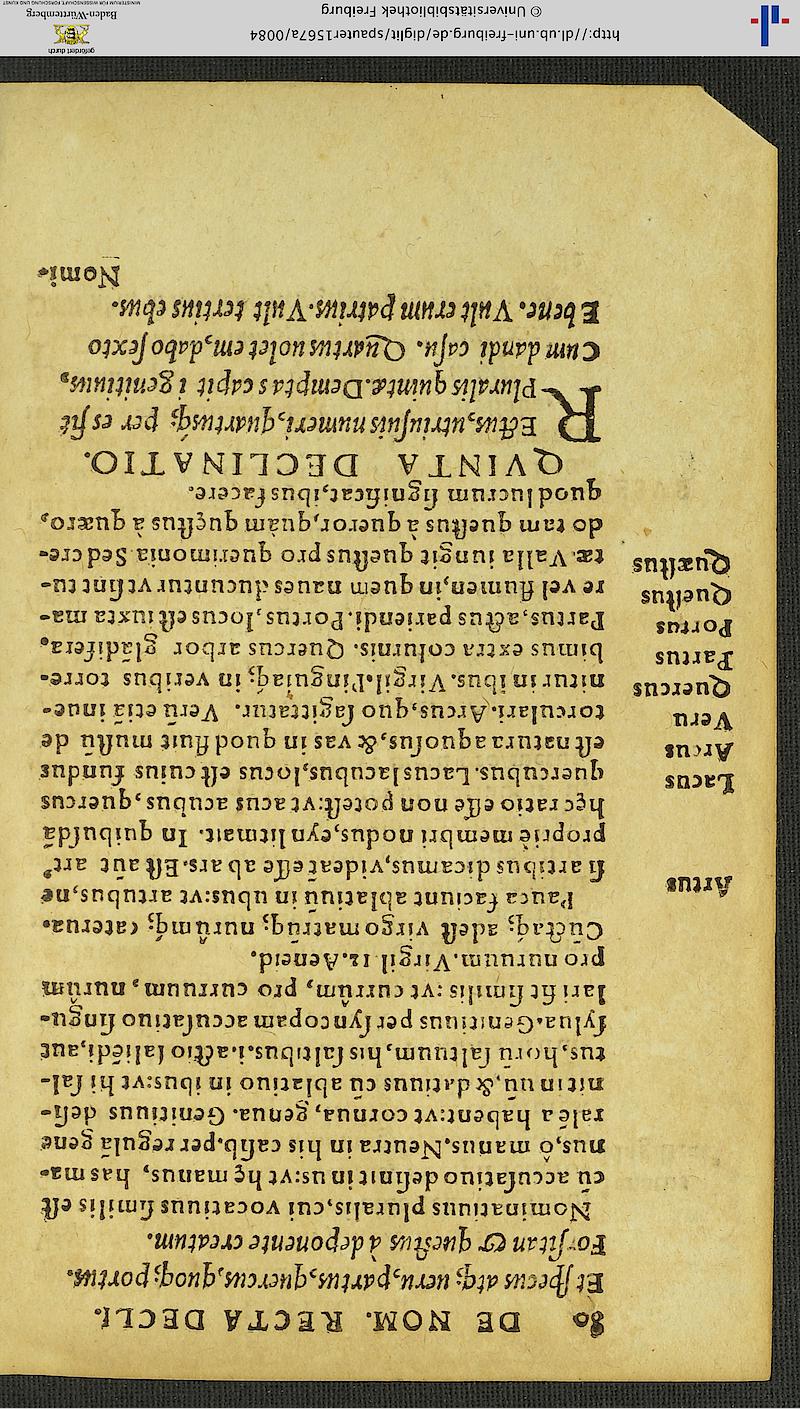 80 DE NOM. RECTA DECLI.
Et specum atq; veru, partum, quercum, quoq; portum.
Forsitan & questum à deponente creatum.
Nominatiuus pluralis, cui vocatiuus similis est
cū accusatiuo definit in us: vt hę manus, has ma-
nus, ô manus. Neutra in his casib. per regulā gene
ralēa habent: vt cornua, genua. Genitiuus desi-
nit in uū, & datiuus cū ablatiuo in ibus: vt hi sal-
tus, horū saltuum, his saltibus. i. actio saliēdi, aut
sylua. Genitiuus per syncopam accusatiuo singu-
lari fit similis: vt currūm, pro curruum, nurūm
pro nuruum. Virgil. 12. Aeneid.
Cūctaq; adest virgo matruq; nurumq; caterua.
Pauca faciunt ablatiuū in ubus: vt artubus, ne
Artus
si artibus dicamus, videatur esse ab ars. Est aut art,
propriè membri nodus, eyn litmait. In quibusdā
hęc ratio esse non potest: vt acus acubus, quercus
quercubus. Lacus lacubus, locus est cuius fundus
Lacus
est natura aquosus, & vas in quod fluit mustū de
torculari. Arcus, quo sagittatur. Veru etiā inue-
Arcus
Veru
nitur in ibus. Virgil. Pinguiaq; in veribus torre-
bimus extra colurnis. Quercus arbor glādifera.
Quercus
Partus, actus pariendi. Portus, locus est iuxta ma-
Partus
re vel flumen, in quem naues ducuntur vt sint tu-
Portus
tæ. Valla iungit questus pro querimonia. Sed cre-
Questus
do tam questus à queror, quàm quęstus à quæro,
Quæstus
quod lucrum significat, ibus facere.
QVINTA DECLINATIO.
Rectus, vtriusuis numeri, quartusq; per es fit
Pluralis quintæ. Dempta s capit i genitiuus,
Cum dandi casu. Quartus notet em, dabo sexto
E bene. Vult erum patrius. Vult tertius ebus.
Nomi-
http://dl.ub.uni-freiburg.de/diglit/spauter1567a/0084
© Universitätsbibliothek Freiburg
gefördert durch
Baden-Württemberg
MINISTERIUM FÜR WISSENSCHAFT, FORSCHUNG UND KUNST